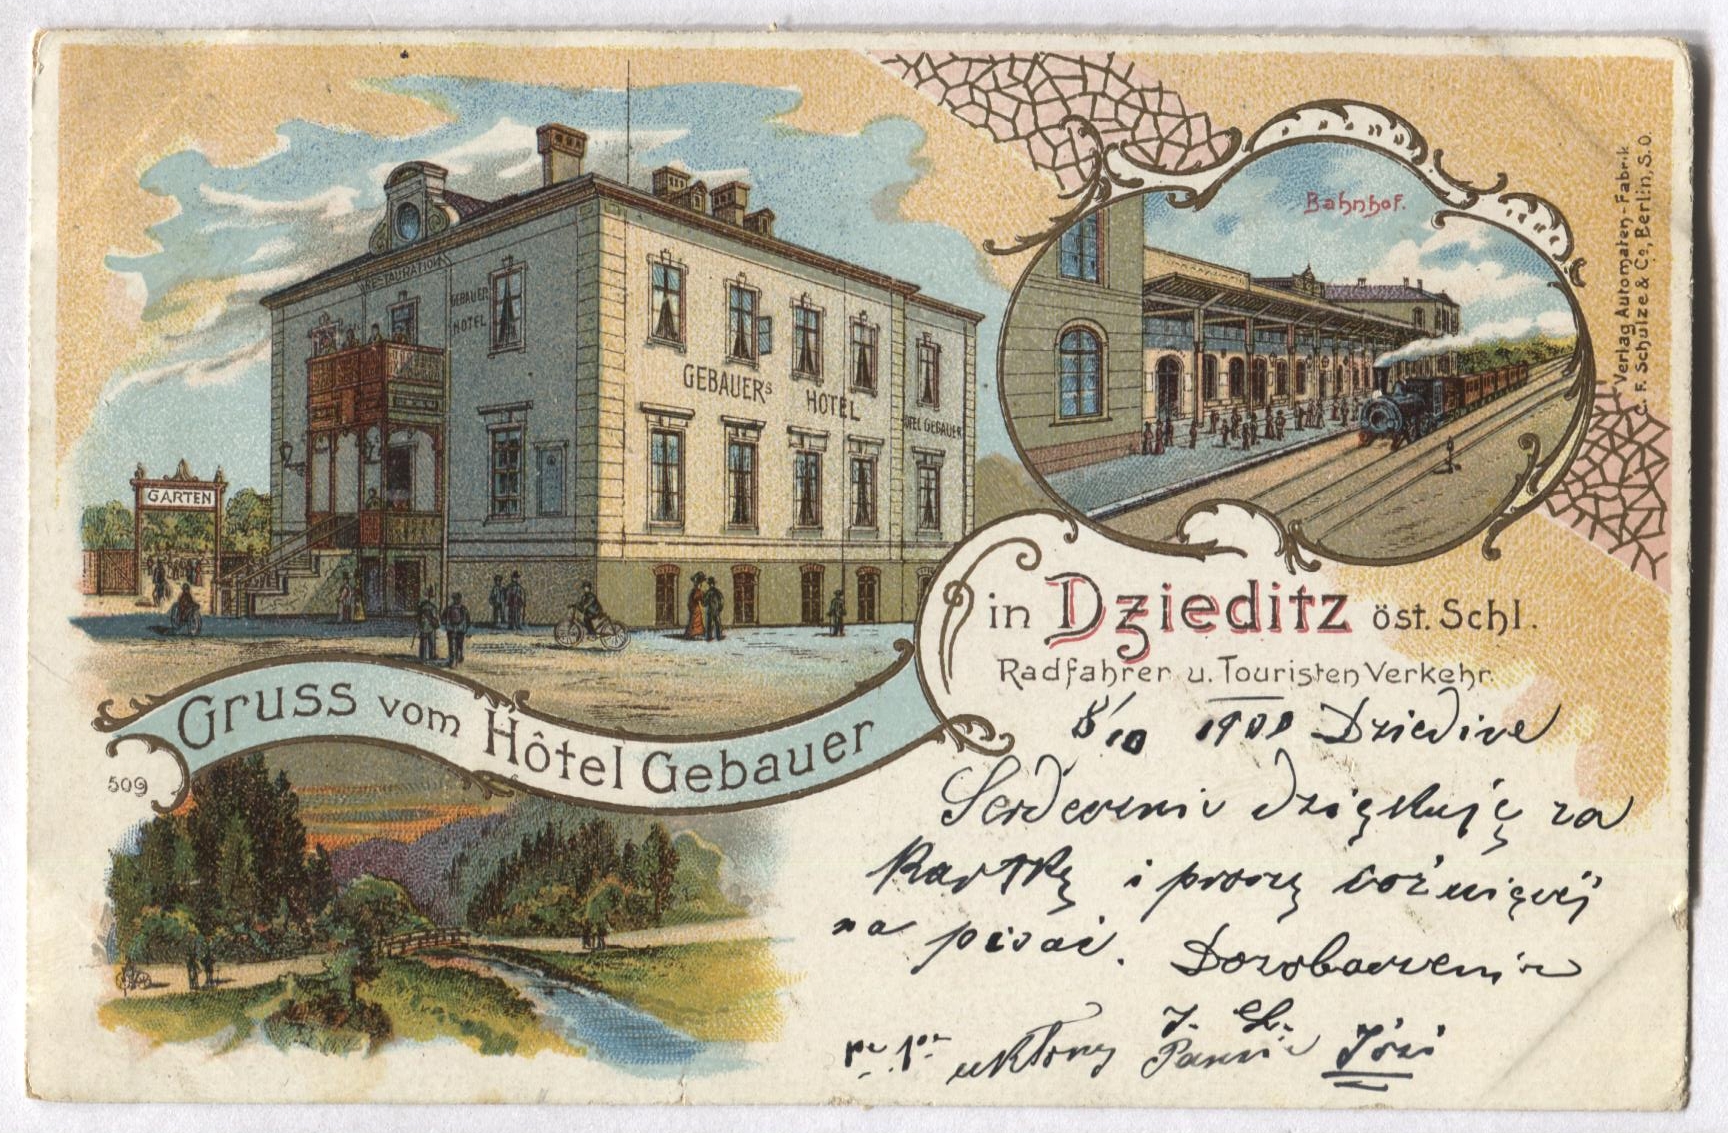 RESTAURATION
GEBAUER
HOTEL
GEBAUERs HOTEL
HOTEL GEBAUER
GARTEN
Bahnhof.
Verlag Automaten-Fabrik
C. F. Schulze & Co, Berlin, S.O.
in Dzieditz öst. Schl.
Radfahrer u. Touristen Verkehr.
Gruss vom Hôtel Gebauer
509
8/10 1900 Dziedice
Serdecznie dziękuję za
Kartkę i proszę
na pisać. Dozobaczenia
J. Ch.
ukłony Pannie Józi